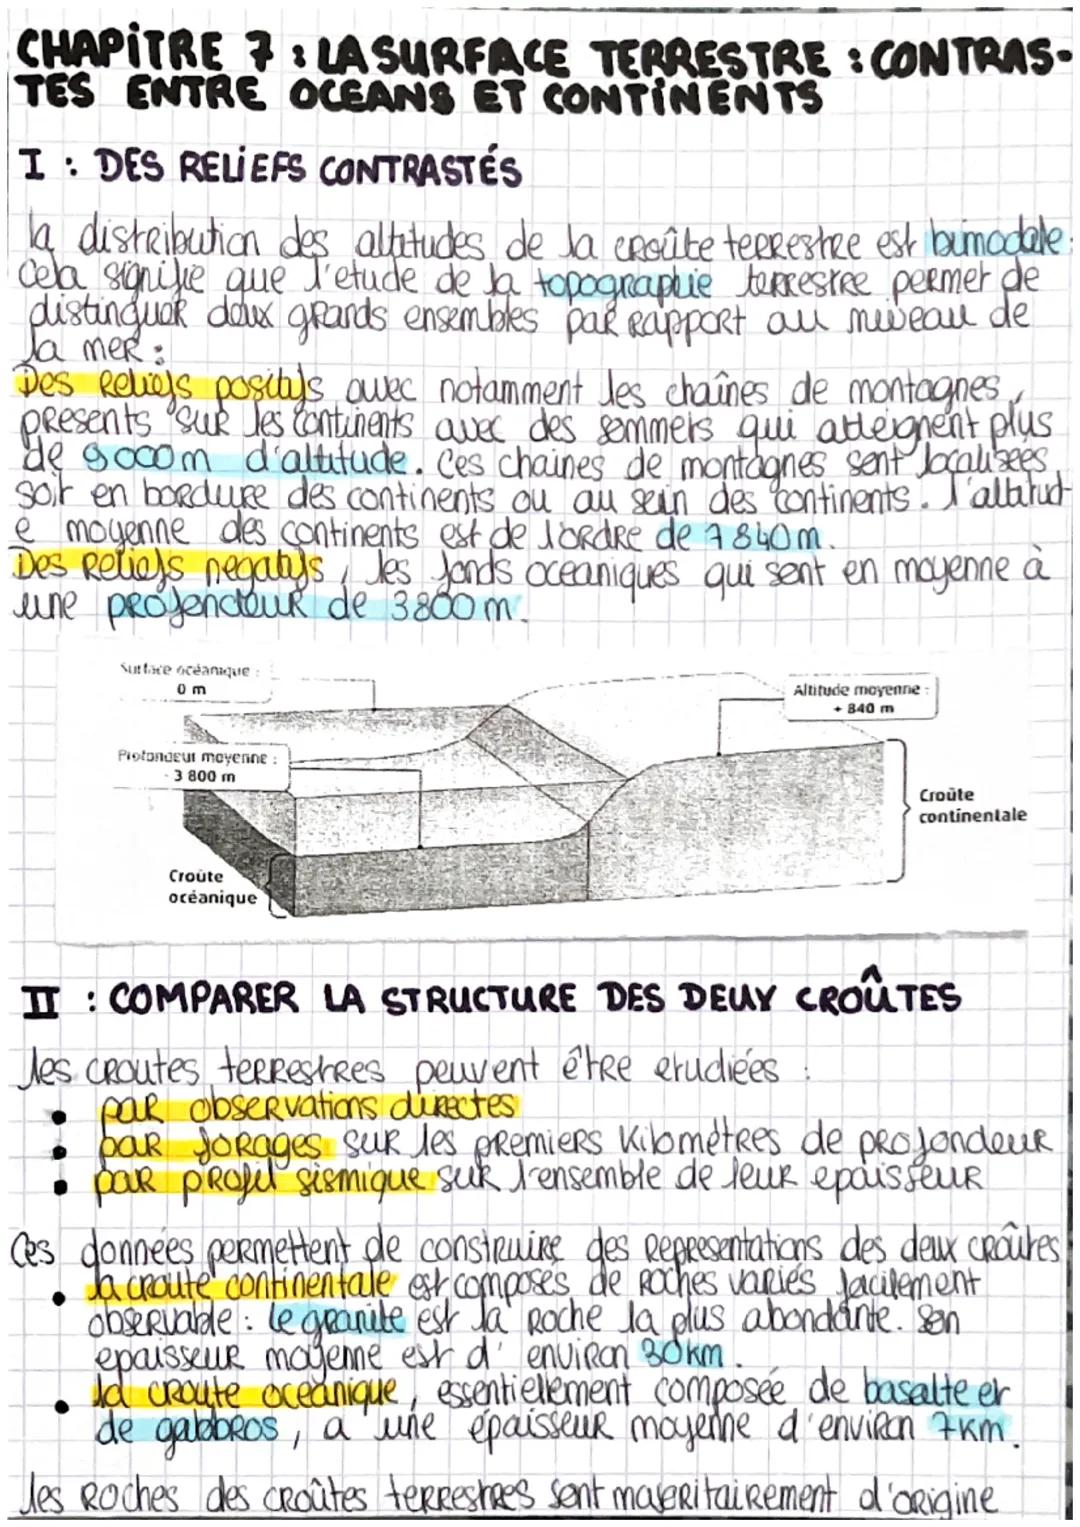 CHAPITRE 7 : LA SURFACE TERRESTRE : CONTRAS-
TES ENTRE OCEANS ET CONTINENTS
I : DES RELIEFS CONTRASTÉS
la distribution des altitudes de la croûte terrestre est bimodale :
Cela signifie que l'etude de la topographie terrestre permet de
distinguer deux grands ensembles par rapport au niveau de
la mer :
Des reliefs positifs avec notamment les chaînes de montagnes,
présents sur les continents avec des sommets qui atteignent plus
de 9000m d'altitude. Ces chaines de montagnes sont localisées
soit en bordure des continents ou au sein des continents. l'altitud-
e moyenne des continents est de l'ordre de 7840m.
Des reliefs negatifs, les fonds océaniques qui sont en moyenne à
une profondeur de 3800m.
Surface océanique :
0 m
Altitude moyenne :
+ 840 m
Profondeur moyenne :
- 3 800 m
Croûte
continentale
Croûte
océanique
II : COMPARER LA STRUCTURE DES DEUX CROÛTES
les croutes terrestres peuvent être etudiées :
• par observations directes
• par forages sur les premiers kilomètres de profondeur
• par profil sismique sur l'ensemble de leur epaisseur
Ces données permettent de construire des représentations des deux croûtes
• la croute continentale est composés de roches variés facilement
observable : le granite est la roche la plus abondante. Son
epaisseur moyenne est d' environ 30km.
• la croute oceanique, essentiellement composée de basalte et
de gabbros, a une épaisseur moyenne d'environ 7km.
les roches des croûtes terrestres sont majoritairement d'origine